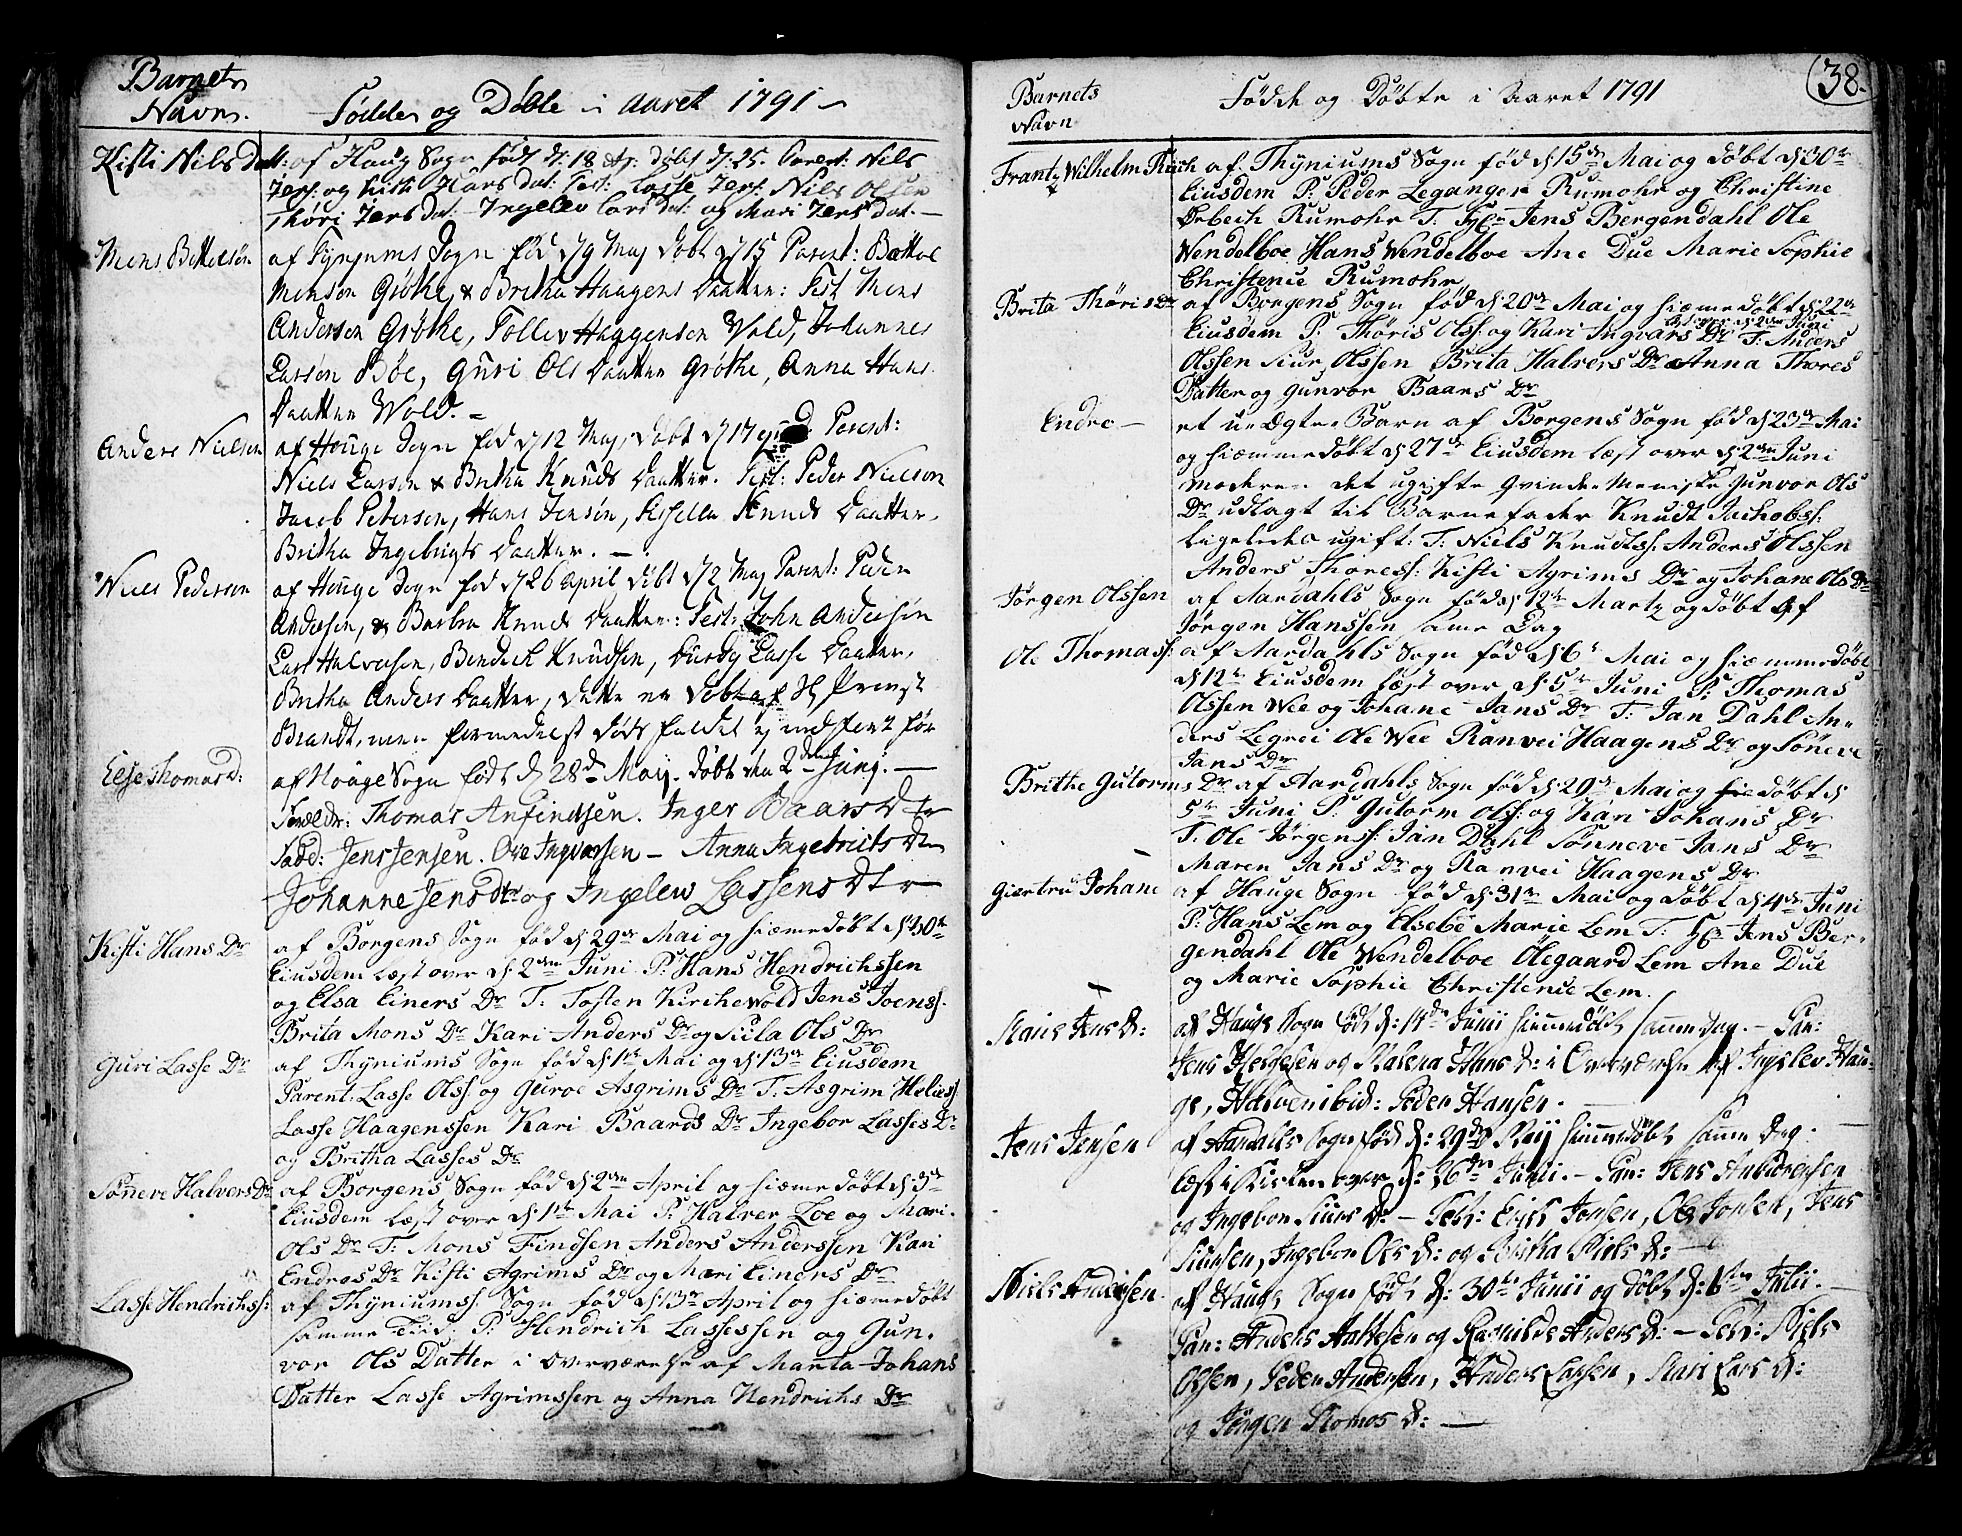 Barnets
Navn.
Fødde og Døbte i Aaret 1791
Kisti Nils dat: af Haug Sogn født d: 18 døbt d: 25. Parent: Nils
Jers: og Kisti Hans dat: Test: Lasse Jers: Nils Olsen
Thóri Jers dat: Ingelev Lars dat: og Mari Jers dat.
Mons Bottelsøn
af Tynjums Sogn fød d 9 Maj døbt d 15 Parent: Bottol
Monsen Grøthe, & Britha Haagens Daatter: Test Mons
Andersen Grøthe, Tollev Haagensen Vold, Johannes
Larsøn Bøe, Guri Ols Daatter Grøthe, Anna Hans
Daatter Vold.
Anders Nielsen
af Houge Sogn fød d 12 Maj, døbt d 17 Parent:
Niels Larsøn & Britha Knuds Daatter. Test: Peder Nielsøn
Jacob Petersen, Hans Jensøn, Sissella Knuds Daatter,
Britha Ingebrigts Daatter.
Niels Pedersøn
af Houge Sogn fød d 26 April døbt d 2 Maj Parent: Peder
Andersen, & Barbra Knuds Daatter: Test: John Andersøn
Lars Halversen, Bendick Knudsen, Lasse Daatter,
Britha Anders Daatter, dette er døbt af H Provst
Brandt, men formedelst døds faldet ej indført før
Else Thomas d:
af Hauge Sogn født d 28de Maij. døbt den 2den Junij.
Forældr: Thomas Anfindsen. Inger Baarsdtr
Fadd: Jens Jensen. Ove Ingvorsen Anna Ingebricts Dtr
Johanne Jensdtr og Ingelew Lassens Dtr
Kisti Hans Dr
af Borgens Sogn fød d 29de Mai og hiæmedøbt d 30te
Eiusdem læst over d: 2den Juni P: Hans Hendrichssen
og Elsa Einers Dr T: Tosten Kirchevold Jens Joenss.
Brita Mons Dr Kari Anders Dr og Siula Ols Dr
Guri Lasse Dr
af Thyniums Sogn fød d 1te Mai og d 13de Eiusdem
Parent: Lasse Olss. og Guroe Asgrims Dr T: Asgrim Heliess
Lasse Haagenssen Kari Baards Dr Ingebor Lasses Dr
og Britha Lasses Dr
Sønneve Halvers Dr
af Borgens Sogn fød d 2den April og hiæmedøbt d 3de
Eiusdem læst over d 1te Mai P: Halver Loe og Mari
Ols Dr T: Mons Findsen Anders Anderssen Kari
Endres Dr Kisti Agrims Dr og Mari Einers Dr
Lasse Hendrichss:
af Thyniumss Sogn fød d 13de April og hiæmedøbt
samme Tiid P: Hendrich Lassessen og Gun-
vor Ols Datter i Overværelse af Marita Johans
Datter Lasse Agrimssen og Anna Hendrichs Dr
38.
Barnets
Navn
Fødde og Døbte i Aaret 1791
Frantz Wilhelm Rusch af Thyniums Sogn fød d 15de Mai og døbt d 30te
Eiusdem P: Peder Leganger Rumohr og Christine
Orbech Rumohr T: Jens Bergendahl Ole
Wendelboe Hans Wendelboe Ane Due Marie Sophie
Christence Rumohr
Brita Thøris Dr af Borgens Sogn fød d: 20de Mai og hiæmedøbt d 22de
læst over d 2den Juni
Eiusdem P: Thøris Olss: og Kari Ingvars Dr T: Anders
Olssen Siur Olssen Brita Halvers Dr Anna Thores
Datter og Gunvor Baars Dr
Endre
et u-Ægte Barn af Borgens Sogn fød d 23de Mai
og hiæmmedøbt d 27de Eiusdem læst over d 2den Juni
Moderen det ugifte Qvinde Meniske Gunvor Ols
Dr udlagt til Barnefader Knudt Jachobss:
ligeledes ugift: T: Niels Knudtss. Anders Olssen
Anders Thoress: Kisti Agrims Dr og Johane Ols Dr
Jørgen Olssen
af Aardahls Sogn fød d 12te Martz og døbt af
Jørgen Hanssen same Dag
Ole Thomass:
af Aardahls Sogn fød d 6te Mai og hiæmmedøbt
d 12te Eiusdem læst over d: 5te Juni P: Thomas
Olssen Wee og Johane Jans Dr T: Jan Dahl An-
ders Legrei Ole Wee Ranvei Haagens Dr og Søneve
Jans Dr
Brithe Gutorms Dr af Aardahls Sogn fød d: 29de Mai og døbt d
5te Juni P: Gutorm Olss: og Kari Johans Dr
T: Ole Jørgenss: Jan Dahl Sønneve Jans Dr
Maren Jans Dr og Ranvei Haagens Dr
Giertru Johane
af Hauge Sogn fød d 31te Mai og døbt d 4de Juni
P: Hans Lem og Elsebe Marie Lem T: Hr Jens Ber-
gendahl Ole Wendelboe Ølegaard Lem Ane Due
og Marie Sophie Christence Lem.
Mari Jens d:
af Haugs Sogn født d: 14de Junii hiemedøbt samme dag. Par:
Jens Helgesen og Malena Hans d: i Overværelse af Ingelev Hau-
ge, Halvor ibid: Peder Hansen.
Jens Jensen
af Aardals Sogn fød d: 29de Maij hiemedøbt samme dag.
læst i Kirken over d: 26de Junii. Par: Jens Andersen
og Ingebor Siurs d: Test: Erich Jonsen, Ole Jonsen, Jens
Siursen, Ingebor Ols d: og Britha Niels d:
Niels Andersen.
af Haugs Sogn født d: 30te Junii og døbt d: Julii
Par: Anders og Ragnilde Anders d: Test: Niels
Olsen, Peder Andersen, Anders Lassen, Mari Lars d:
og Jørgen Thomos d: